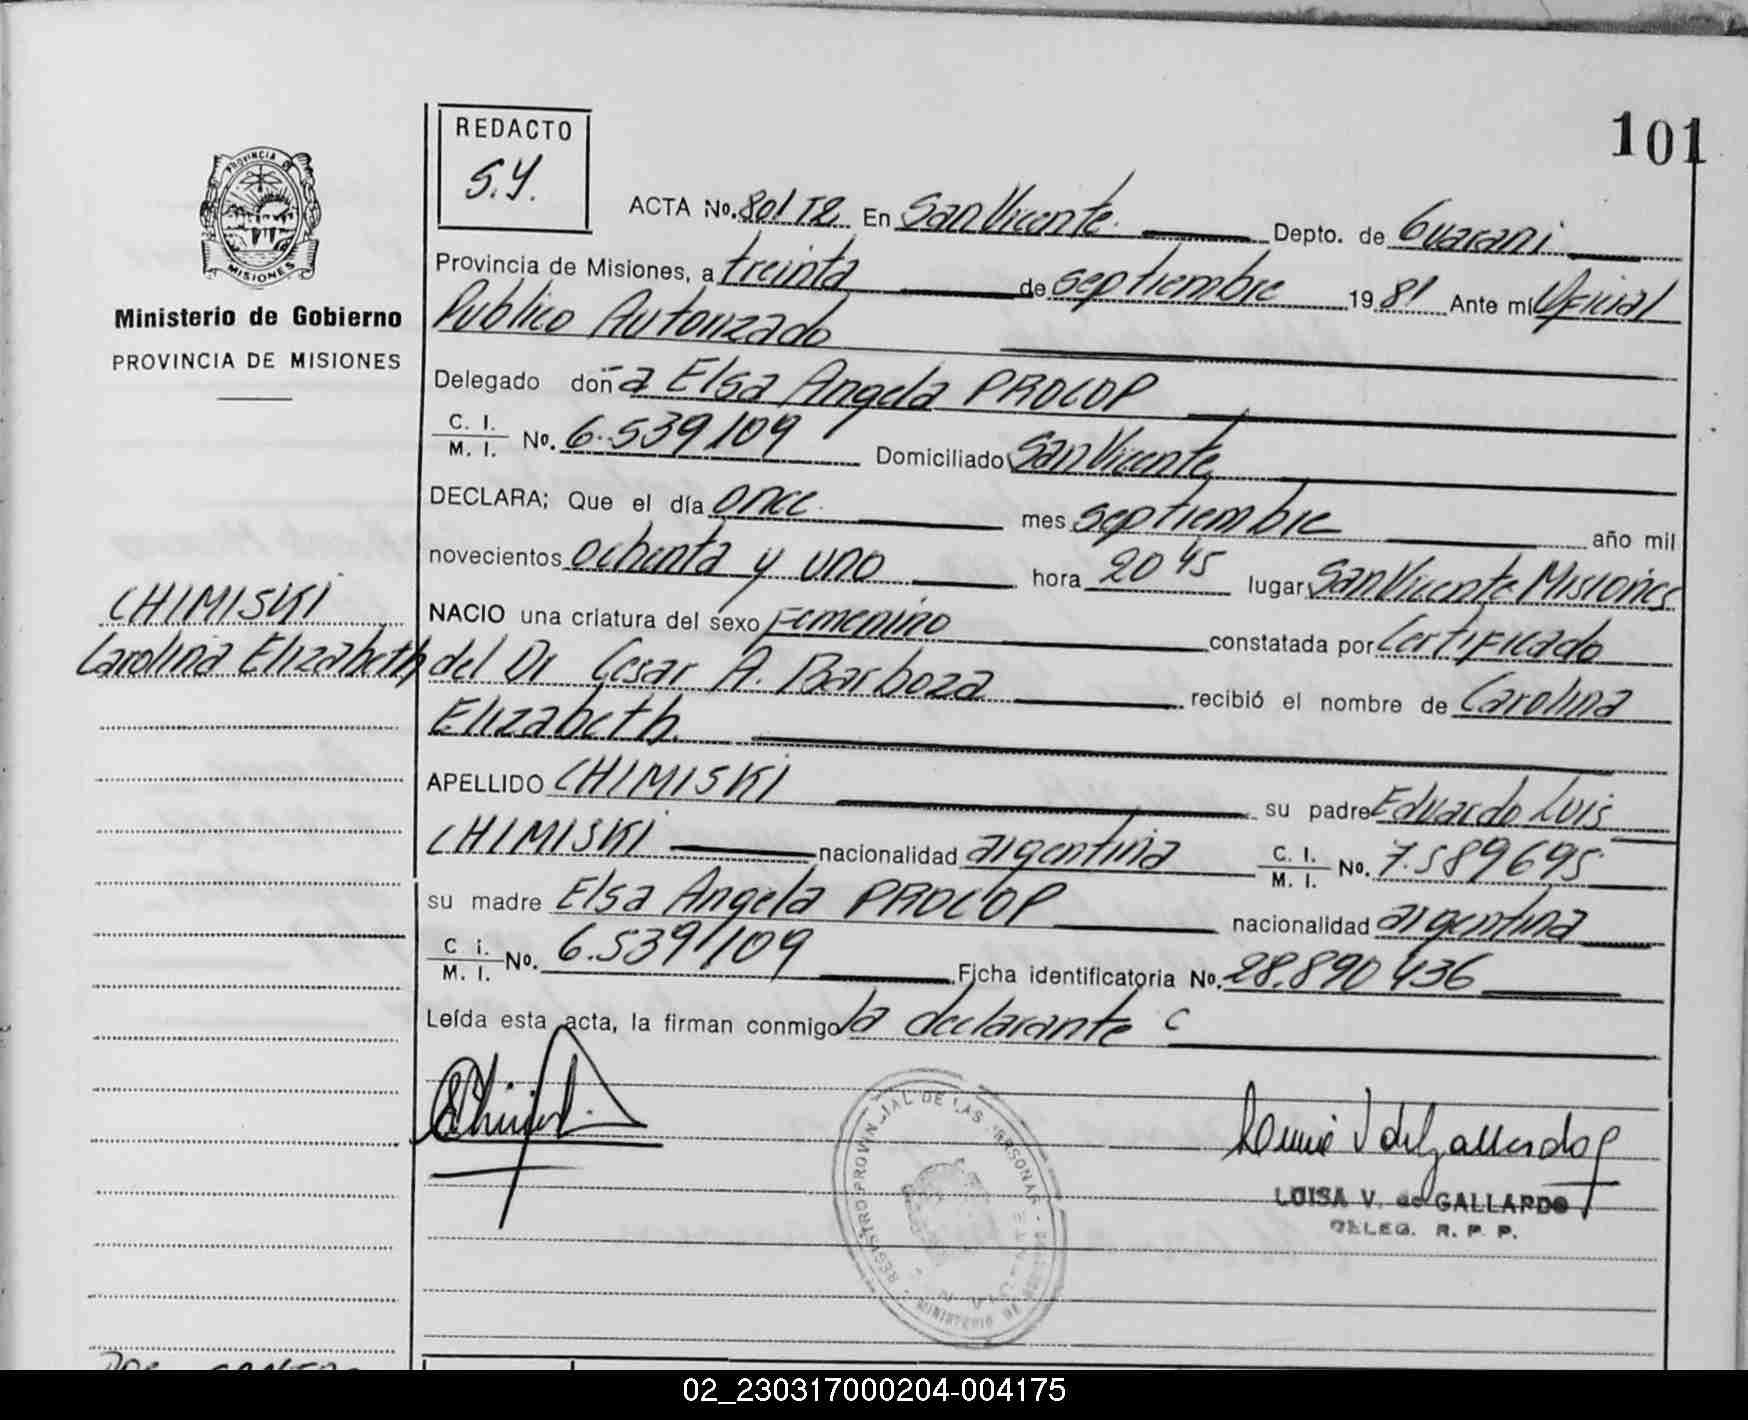 101
REDACTO
S.Y.
PROVINCIA DE
MISIONES
Ministerio de Gobierno
PROVINCIA DE MISIONES
ACTA No. 801 T2 En San Vicente Depto. de Guarani
Provincia de Misiones, a treinta de septiembre 1981 Ante mí Oficial
Publico Autorizado
Delegado doña Elsa Angela PROCOP
C. I. / M. I. No. 6.539109 Domiciliado San Vicente
DECLARA; Que el día once mes septiembre año mil
novecientos ochenta y uno hora 20 45 lugar San Vicente Misiones
CHIMISKI
Carolina Elizabeth
NACIO una criatura del sexo Femenino constatada por Certificado
del Dr Cesar A. Barboza recibió el nombre de Carolina
Elizabeth.
APELLIDO CHIMISKI su padre Eduardo Luis
CHIMISKI nacionalidad argentina C. I. / M. I. No. 7.589695
su madre Elsa Angela PROCOP nacionalidad argentina
C. i. / M. I. No. 6.539109 Ficha identificatoria No. 28.890 436
Leída esta acta, la firman conmigo la declarante
REGISTRO PROVINCIAL DE LAS PERSONAS
MINISTERIO DE
LUISA V. de GALLARDO
DELEG. R. P. P.
02_230317000204-004175